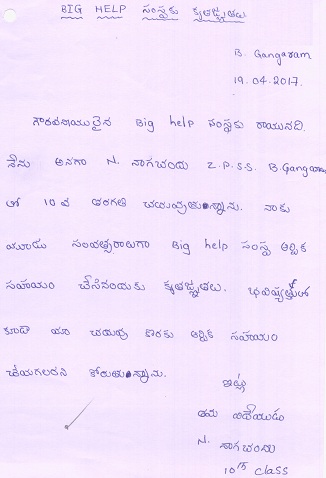 BIG HELP సంస్థకు కృతజ్ఞతలు
B. Gangaram
19.04.2017.
గౌరవనీయులైన Big help సంస్థకు రాయునది.
నేను అనగా N. నాగచందు Z.P.S.S. B.Gangaram
లో 10 వ తరగతి చదువుతున్నాను. నాకు
మూడు సంవత్సరాలుగా Big help సంస్థ ఆర్థిక
సహాయం చేసినందుకు కృతజ్ఞతలు. భవిష్యత్తులో
కూడా మా చదువు కొరకు ఆర్థిక సహాయం
చేయగలరని కోరుతున్నాను.
ఇట్లు
తమ విదేయుడు
N. నాగచందు
10th class